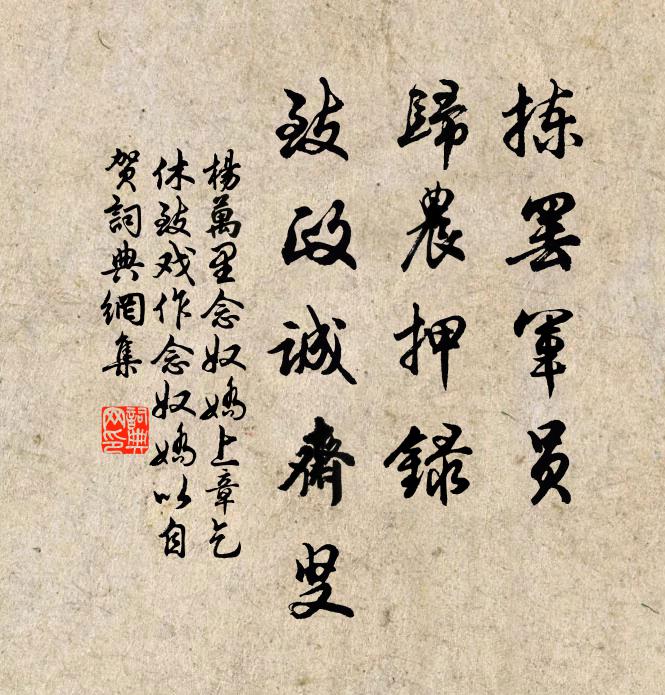 拣罢军员
歸農押録
致政誠齋叟
楊萬里念奴嬌上章乞
休致戏作念奴嬌以自
贺詞典網集
詞典
网印